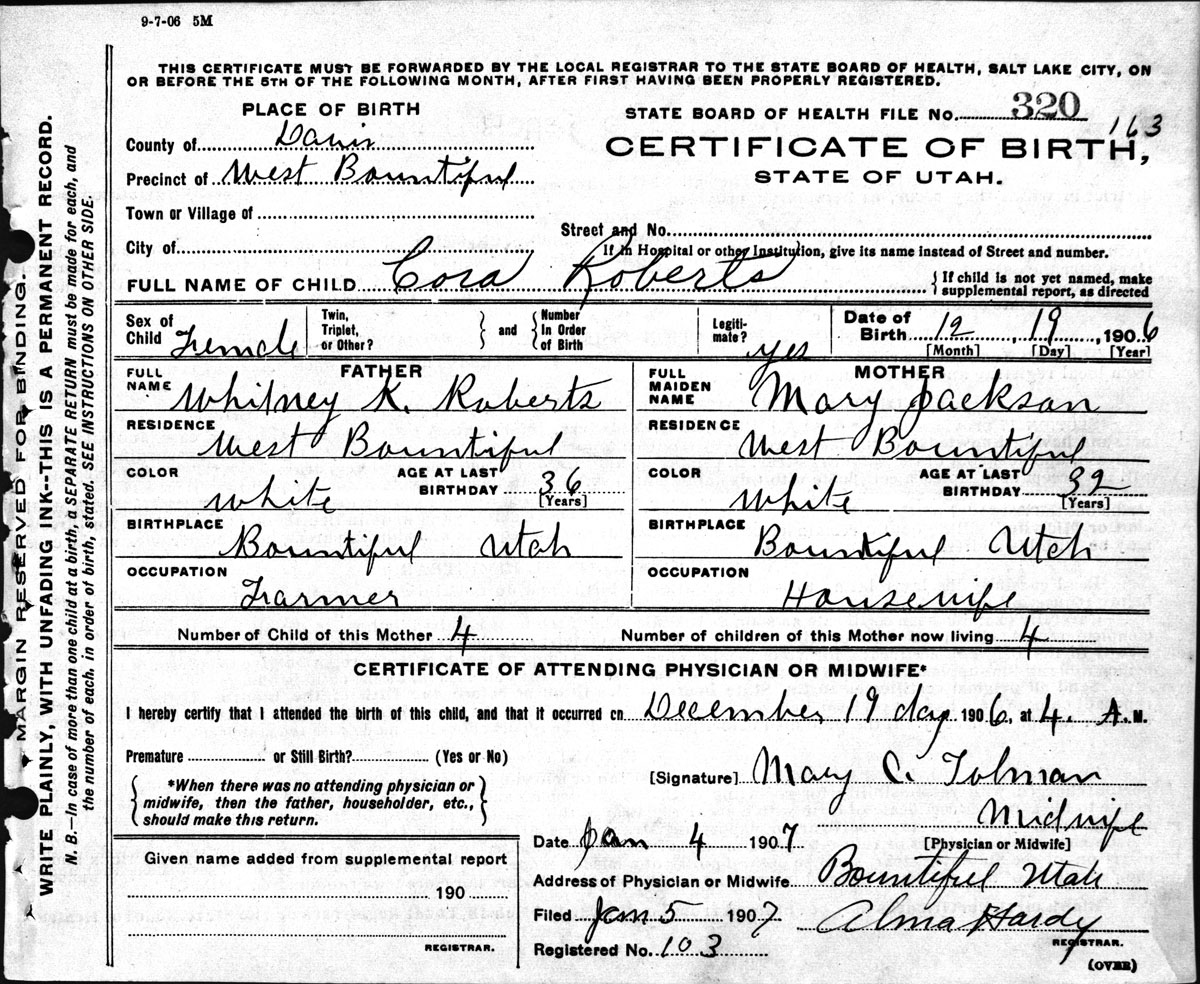 9-7-06 5M
THIS CERTIFICATE MUST BE FORWARDED BY THE LOCAL REGISTRAR TO THE STATE BOARD OF HEALTH, SALT LAKE CITY, ON
OR BEFORE THE 5TH OF THE FOLLOWING MONTH, AFTER FIRST HAVING BEEN PROPERLY REGISTERED.
PLACE OF BIRTH
County of Davis
Precinct of West Bountiful
Town or Village of
City of
STATE BOARD OF HEALTH FILE No. 320
163
CERTIFICATE OF BIRTH,
STATE OF UTAH.
Street and No.
If in Hospital or other Institution, give its name instead of Street and number.
FULL NAME OF CHILD Cora Roberts
{ If child is not yet named, make
supplemental report, as directed
Sex of
Child Female
Twin,
Triplet,
or Other?
} and {
Number
In Order
of Birth
Legiti-
mate? yes
Date of
Birth 12, 19, 1906
[Month] [Day] [Year]
FATHER
FULL
NAME Whitney K. Roberts
RESIDENCE West Bountiful
COLOR White
AGE AT LAST
BIRTHDAY 36
[Years]
BIRTHPLACE
Bountiful Utah
OCCUPATION
Farmer
MOTHER
FULL
MAIDEN
NAME Mary Jackson
RESIDENCE West Bountiful
COLOR White
AGE AT LAST
BIRTHDAY 32
[Years]
BIRTHPLACE
Bountiful Utah
OCCUPATION
Housewife
Number of Child of this Mother 4 Number of children of this Mother now living 4
CERTIFICATE OF ATTENDING PHYSICIAN OR MIDWIFE*
I hereby certify that I attended the birth of this child, and that it occurred on December 19 day 1906, at 4. A. M.
Premature or Still Birth? (Yes or No)
{ *When there was no attending physician or
midwife, then the father, householder, etc.,
should make this return. }
[Signature] Mary C. Tolman
Midwife
[Physician or Midwife]
Date Jan 4 1907
Address of Physician or Midwife Bountiful Utah
Filed Jan 5 1907 Alma Hardy
REGISTRAR.
Registered No. 103
(OVER)
Given name added from supplemental report
190
REGISTRAR.
MARGIN RESERVED FOR BINDING.
WRITE PLAINLY, WITH UNFADING INK--THIS IS A PERMANENT RECORD.
N. B.—In case of more than one child at a birth, a SEPARATE RETURN must be made for each, and
the number of each, in order of birth, stated. SEE INSTRUCTIONS ON OTHER SIDE.